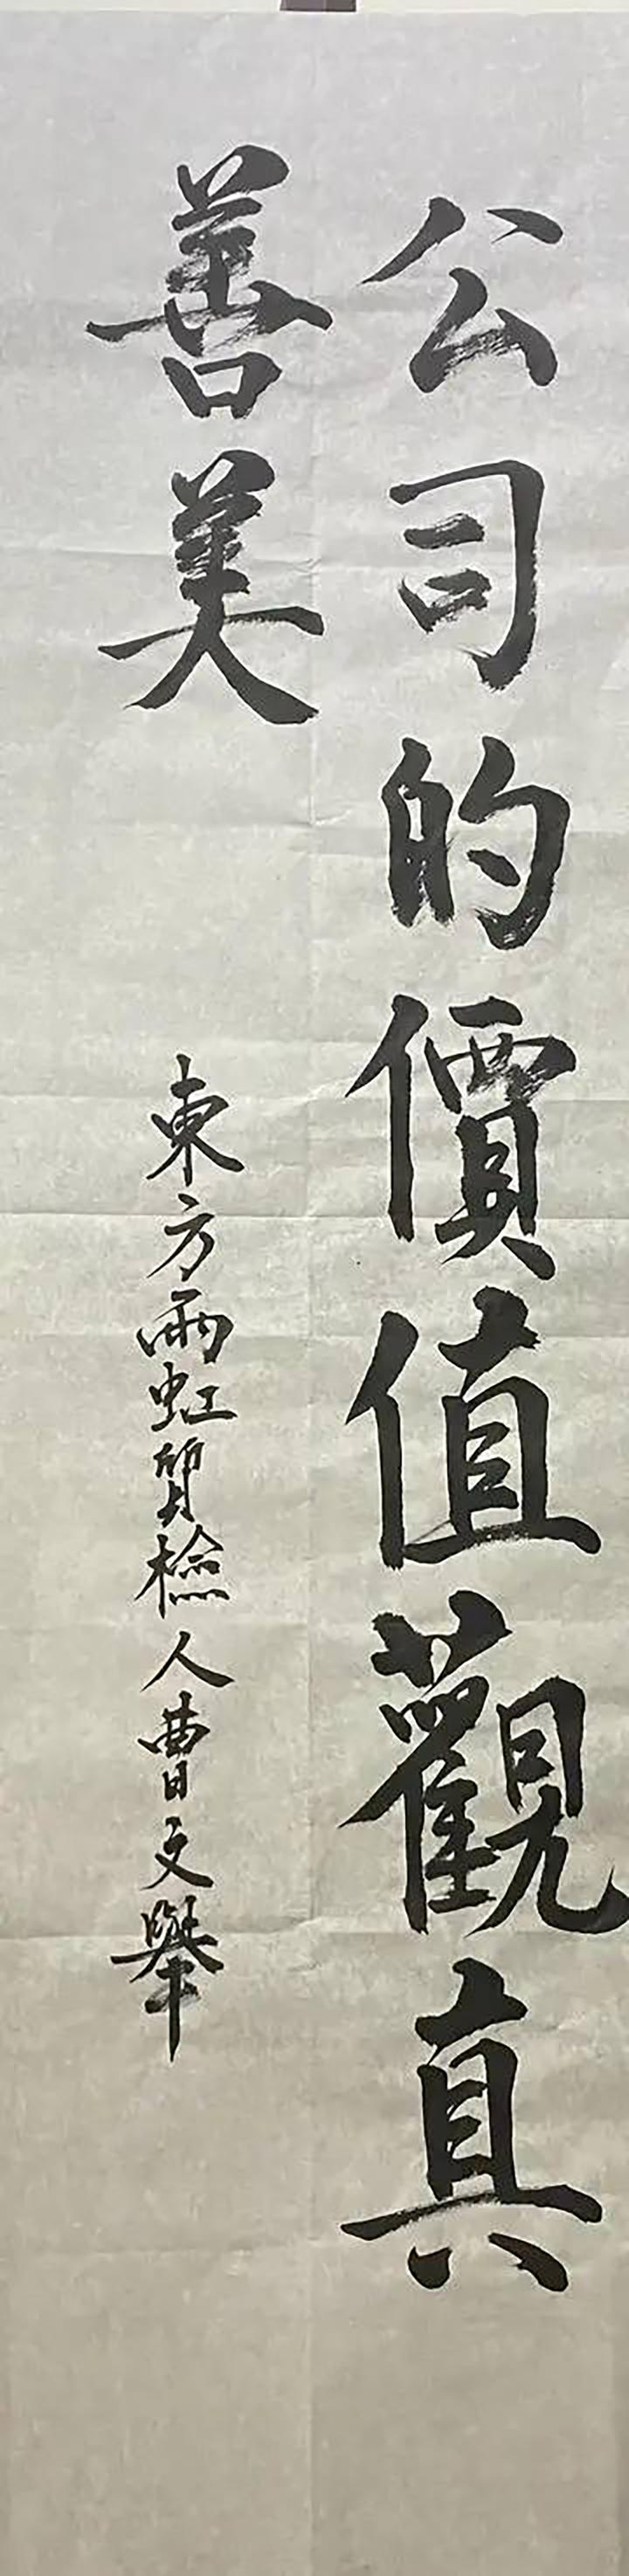 公司的價值觀真
善美
東方雨虹質檢人曹文舉